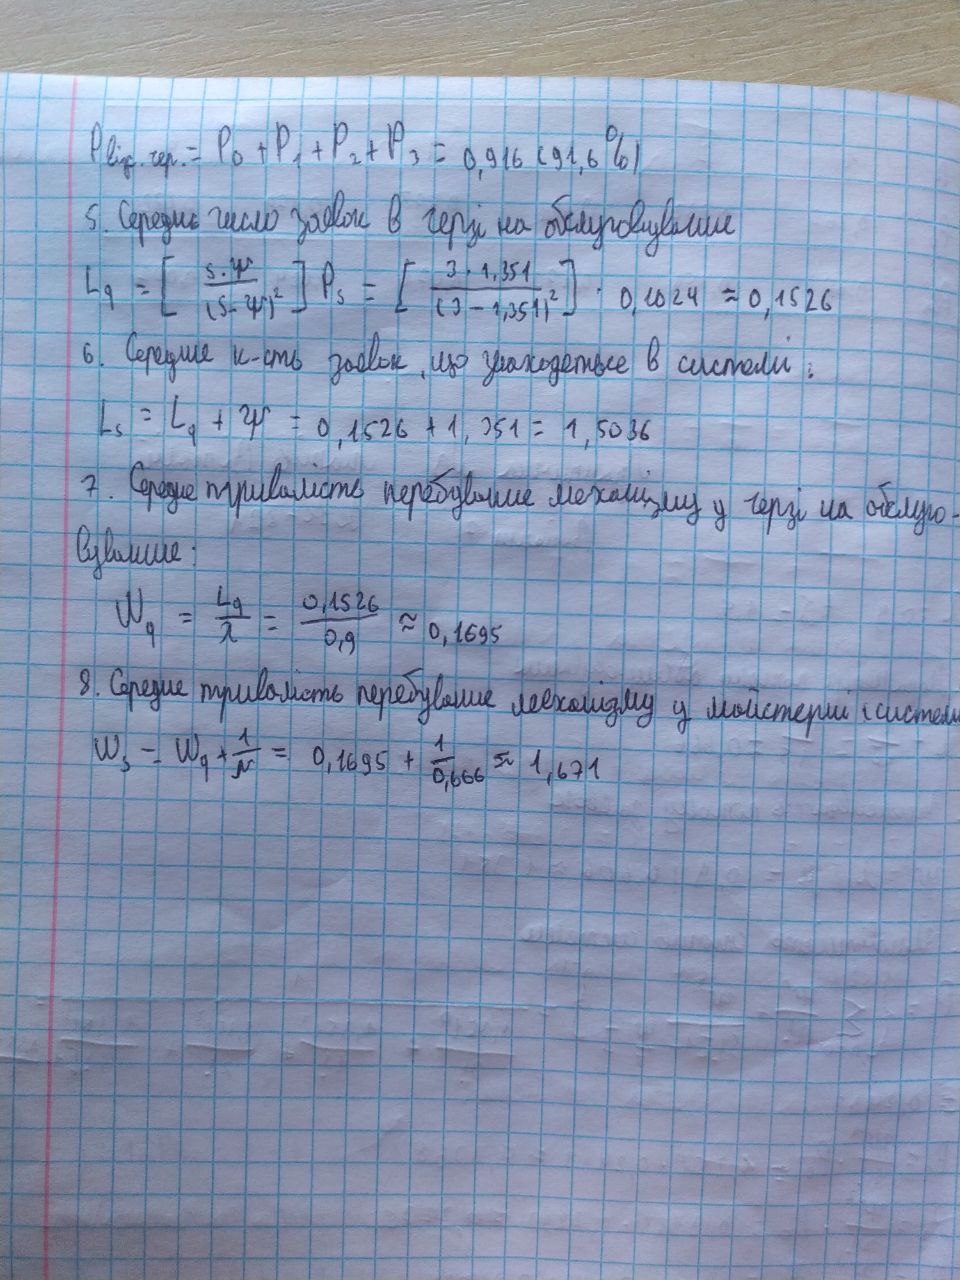 Pвід.чер. = P₀ + P₁ + P₂ + P₃ = 0,916 (91,6%)
5. Середнє число заявок в черзі на обслуговування
Lq = [s·ψ / (s-ψ)²] Ps = [3·1,351 / (3-1,351)²] · 0,1024 ≈ 0,1526
6. Середнє к-сть заявок, що знаходяться в системі:
Ls = Lq + ψ = 0,1526 + 1,351 = 1,5036
7. Середнє тривалість перебування механізму у черзі на обслуго-
вування:
Wq = Lq/λ = 0,1526/0,9 ≈ 0,1695
8. Середнє тривалість перебування механізму у майстерні (системі
Ws = Wq + 1/μ = 0,1695 + 1/0,666 ≈ 1,671